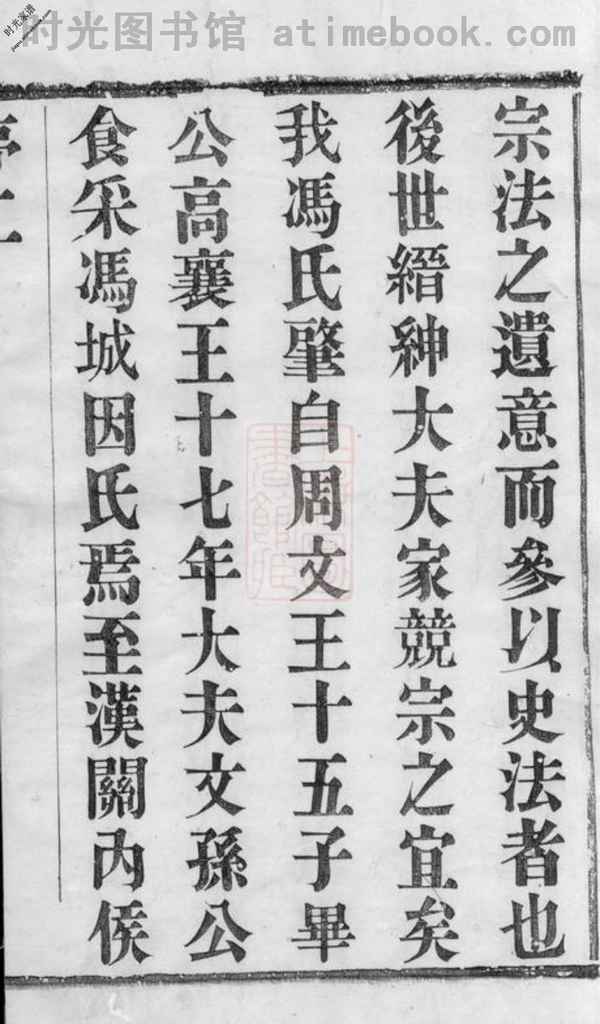 时光图书馆 atimebook.com
时光家谱
宗法之遺意而參以史法者也
後世縉紳大夫家競宗之宜矣
我馮氏肇自周文王十五子畢
公高襄王十七年大夫文孫公
食采馮城因氏焉至漢關內侯